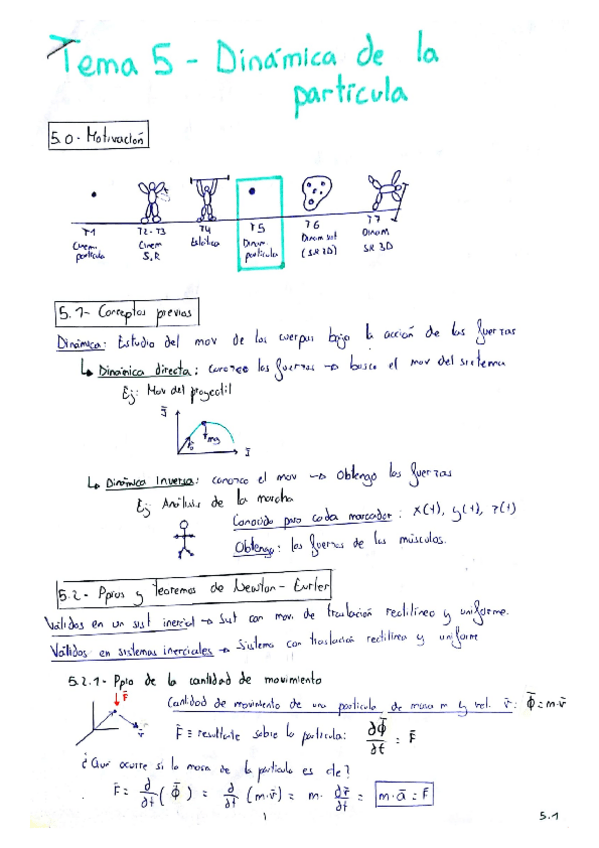 Tema 5 - Dinámica de la
partícula
5.0- Motivación
T1 T2-T3 T4 T5 T6 T7
Cinem. partícula Cinem S.R Estática Dinám. partícula Dinam sist (SR 2D) Dinam SR 3D
5.1- Conceptos previos
Dinámica: Estudio del mov de los cuerpos bajo la acción de las fuerzas
↳ Dinámica directa: conozco las fuerzas → busco el mov del sistema
Ej: Mov del proyectil
mg
↳ Dinámica Inversa: conozco el mov → Obtengo las fuerzas
Ej: Análisis de la marcha
Conocido para cada marcador: x(t), y(t), z(t)
Obtengo: las fuerzas de los músculos.
5.2- Ppios y teoremas de Newton-Euler
Válidos en un sist inercial → Sist con mov. de traslación rectilíneo y uniforme.
Válidos en sistemas inerciales → Sistema con traslación rectilínea y uniforme
5.2.1- Ppio de la cantidad de movimiento
F̄
v̄
Cantidad de movimiento de una partícula de masa m y vel. v̄: Φ̄=m·v̄
F̄ ≡ resultante sobre la partícula: dΦ̄/dt = F̄
¿Qué ocurre si la masa de la partícula es cte?
F̄ = d/dt (Φ̄) = d/dt (m·v̄) = m· dv̄/dt = m·ā = F̄
1
5.1